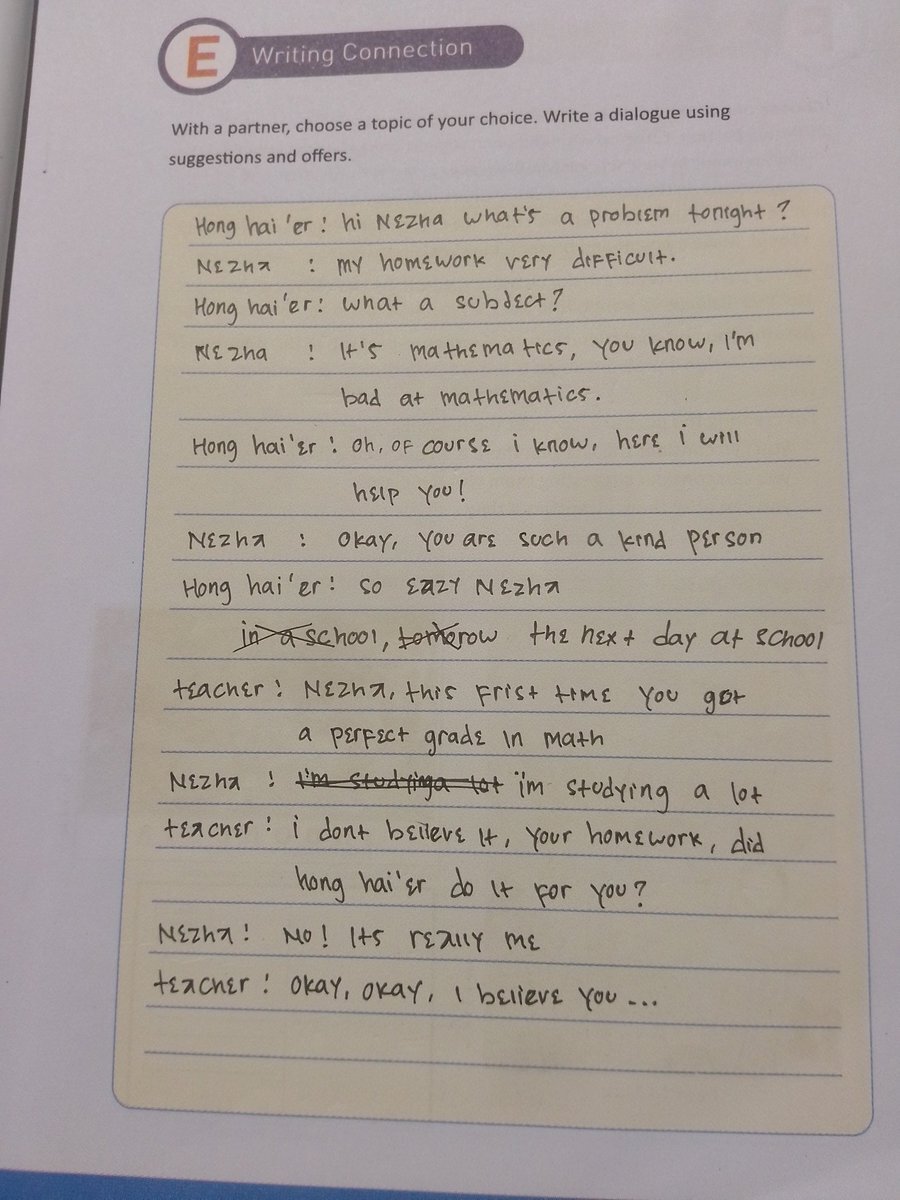 E Writing Connection
With a partner, choose a topic of your choice. Write a dialogue using
suggestions and offers.
Hong hai'er : hi Nezha what's a problem tonight ?
Nezha : my homework very difficult.
Hong hai'er : what a subdect?
Nezha : It's mathematics, you know, I'm
bad at mathematics.
Hong hai'er : oh, of course i know, here i will
help you!
Nezha : okay, you are such a kind person
Hong hai'er : so eazy Nezha
in a school, tomorow the next day at school
teacher : Nezha, this frist time you got
a perfect grade in math
Nezha : I'm studying a lot i'm studying a lot
teacher : i dont believe it, your homework, did
hong hai'er do it for you?
Nezha : No! Its really me
teacher : okay, okay, i believe you ...